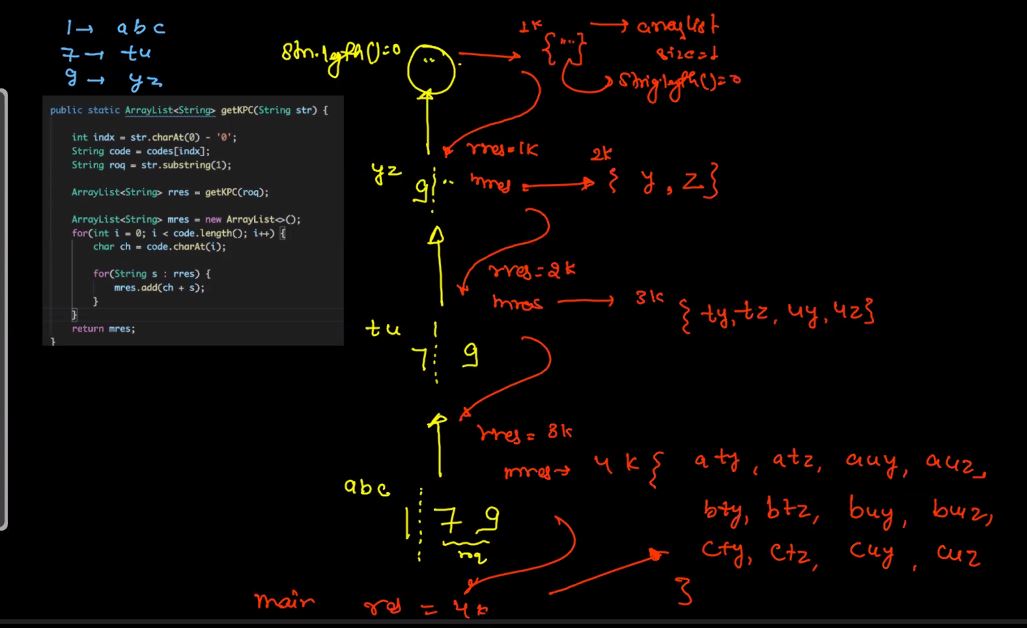 1 → abc
7 → tu
9 → yz
public static ArrayList<String> getKPC(String str) {
int indx = str.charAt(0) - '0';
String code = codes[indx];
String roq = str.substring(1);
ArrayList<String> rres = getKPC(roq);
ArrayList<String> mres = new ArrayList<>();
for(int i = 0; i < code.length(); i++) {
char ch = code.charAt(i);
for(String s : rres) {
mres.add(ch + s);
}
}
return mres;
}
Str.length()=0
".."
1k
{ "..." } → arraylist
size=1
String.length()=0
rres=1k
yz
9 ¦ ..
mres → 2k { y, z }
rres=2k
mres → 3k { ty, tz, uy, uz }
tu
7 ¦ 9
rres = 3k
mres → 4k { aty, atz, auy, auz,
bty, btz, buy, buz,
cty, ctz, cuy, cuz
}
abc
1 ¦ 7 9
roq
main res = 4k